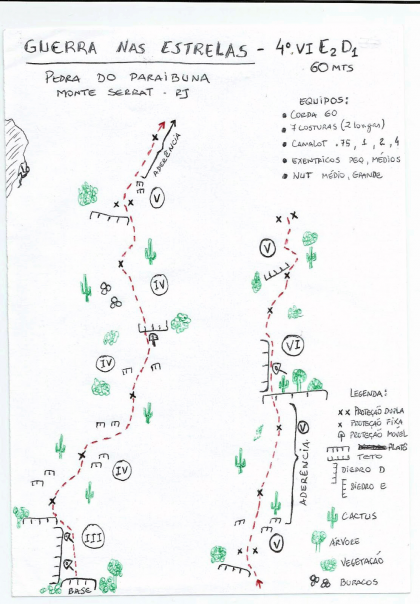 GUERRA NAS ESTRELAS - 4º VI E2 D1
60 MTS
PEDRA DO PARAIBUNA
MONTE SERRAT - RJ
EQUIPOS:
CORDA 60
7 COSTURAS (2 longas)
CAMALOT .75, 1, 2, 4
EXENTRICOS PEQ, MÉDIOS
NUT MÉDIO, GRANDE
ADERÊNCIA
V
IV
IV
IV
III
BASE
V
VI
ADERÊNCIA V
V
LEGENDA:
PROTEÇÃO DUPLA
PROTEÇÃO FIXA
PROTEÇÃO MÓVEL
PLATÔ
TETO
DIEDRO D
DIEDRO E
CACTUS
ÁRVORE
VEGETAÇÃO
BURACOS